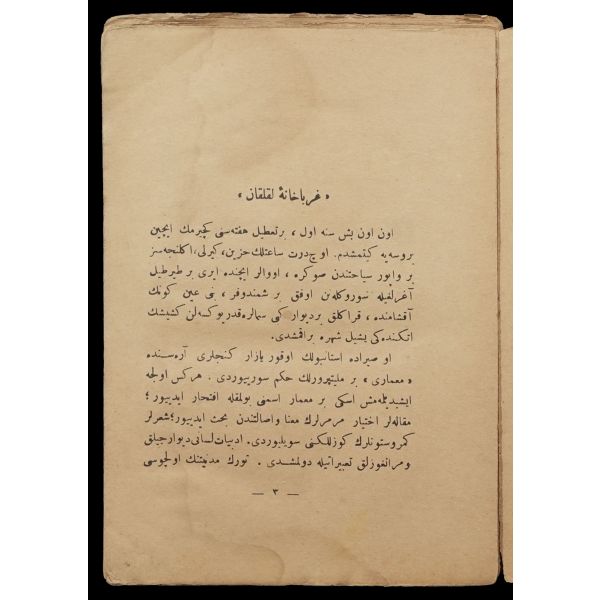 « غرباخانهٔ لقلقان »
اون اون بش سنه اول ، بر تعطیل هفته‌سنی کچیرمك ایچین
بروسه‌یه کیتمشدم . اوچ درت ساعتلك حزین ، کیرلی ، اکلنجه‌سز
بر واپور سیاحتندن صوکره ، اووالر ایچنده ایری بر طیرطیل
آغرلغیله سوروکله‌نن اوفق بر شمندوفر ، بنی عین کونك
آقشامنده ، قراکلق بر دیوار کبی سمالره قدر یوکسه‌لن کشیشك
اتکنده‌کی یشیل شهره براقمشدی .
او صیراده استانبولك اوقور یازار کنجلری آره‌سنده
« معماری » بر ملیتپرورلك حکم سوریوردی . هرکس اولجه
ایشیدیلمه‌مش اسکی بر معمار اسمنی بولمقله افتخار ایدییور ؛
مقاله‌لر اختیار مرمرلرك معنا واصالتندن بحث ایدییور ؛ شعرلر
کمر وستونلرك کوزللکنی سویلیوردی . ادبیات لسانی دیوارجیلق
ومرانغوزلق تعبیراتیله دولمشدی . تورك مدنیتنك اولچوسی
— ٣ —